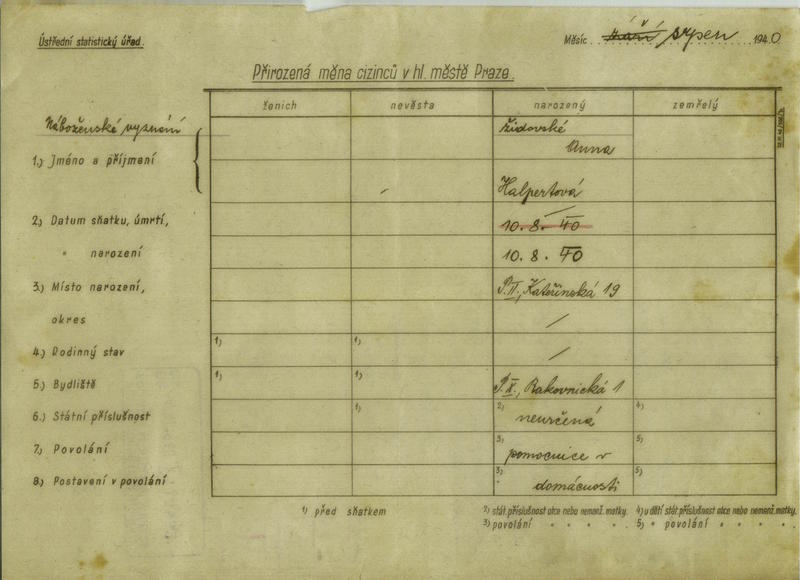 Ústřední statistický úřad.
Měsíc září srpen 1940
Přirozená měna cizinců v hl. městě Praze.
ženich nevěsta narozený zemřelý
Náboženské vyznání židovské
Anna
1.) Jméno a příjmení
Halpertová
2.) Datum sňatku, úmrtí, 10. 8. 40
" narození 10. 8. 40
3.) Místo narození, P.II., Kateřinská 19
okres /
4.) Rodinný stav 1) 1) /
5.) Bydliště 1) 1) Rakovnická 1
6.) Státní příslušnost 1) 2) neurčená 4)
7.) Povolání 3) pomocnice v 5)
8.) Postavení v povolání 3) domácnosti 5)
1) před sňatkem
2) stát. příslušnost otce nebo nemanž. matky. 4) u dětí stát. příslušnost otce nebo nemanž. matky.
3) povolání " " " " 5) " povolání " " " "